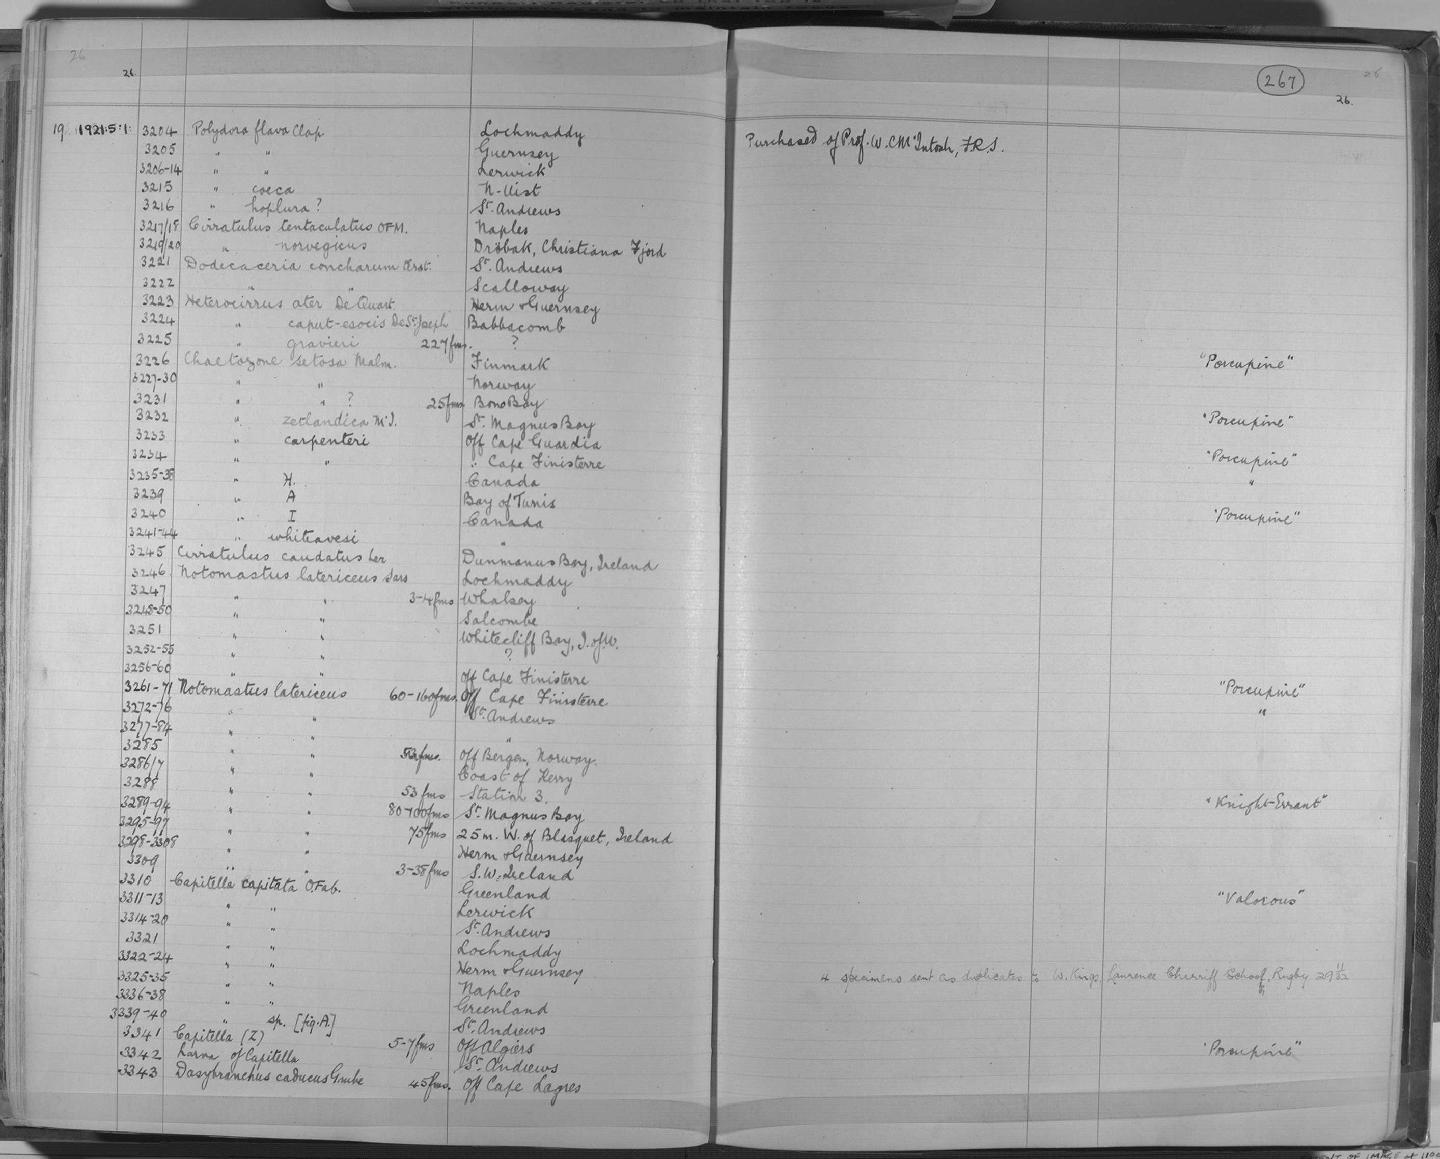 26
26.
267
26
26.
19 1921:5:1: 3204 Polydora flava Clap Lochmaddy Purchased of Prof. W. C. McIntosh, F.R.S.
3205 " " Guernsey
3206-14 " " Lerwick
3215 " coeca N-Uist
3216 " hoplura? St. Andrews
3217/18 Cirratulus tentaculatus OFM. Naples
3219/20 " norvegicus Dröbak, Christiana Fjord
3221 Dodecaceria concharum Örst. St. Andrews
3222 " " Scalloway
3223 Heterocirrus ater De Quart. Herm & Guernsey
3224 " caput-esocis De St. Joseph Babbacomb
3225 " gravieri 227 fms. ?
3226 Chaetozone setosa Malm. Finmark "Porcupine"
3227-30 " " Norway
3231 " " ? 25 fms Bono Bay
3232 " zetlandica McI. St. Magnus Bay "Porcupine"
3233 " carpenteri Off Cape Guardia
3234 " " " Cape Finisterre "Porcupine"
3235-38 " H. Canada "
3239 " A Bay of Tunis
3240 " I Canada "Porcupine"
3241-44 " whiteavesi "
3245 Cirratulus caudatus Lev Dunmanus Bay, Ireland
3246 Notomastus latericeus Sars Lochmaddy
3247 " " 3-4 fms Whalsey
3248-50 " Salcombe
3251 " " Whitecliff Bay, I. of W.
3252-55 " " ?
3256-60 " " Off Cape Finisterre
3261-71 Notomastus latericeus 60-160 fms. Off Cape Finisterre "Porcupine"
3272-76 " " St. Andrews "
3277-84 " " "
3285 " " fms. Off Bergen, Norway.
3286/7 " " Coast of Kerry
3288 " 53 fms Station 3.
3289-94 " 80-100 fms St. Magnus Bay "Knight-Errant"
3295-97 " " 75 fms 25 m. W. of Blasquet, Ireland
3298-3308 " " Herm & Guernsey
3309 " " 3-38 fms S.W. Ireland
3310 Capitella capitata O.Fab. Greenland
3311-13 " " Lerwick "Valorous"
3314-20 " " St. Andrews
3321 " " Lochmaddy
3322-24 " " Herm & Guernsey
3325-35 " " Naples 4 specimens sent as duplicates to W. Kings, Laurence Sherriff School, Rugby 29
3336-38 " " Greenland
3339-40 " sp. [fig. A.] St. Andrews
3341 Capitella (Z) 5-7 fms Off Algiers
3342 Larva of Capitella St. Andrews "Porcupine"
3343 Dasybranchus caducus Grube 45 fms. Off Cape Lagres